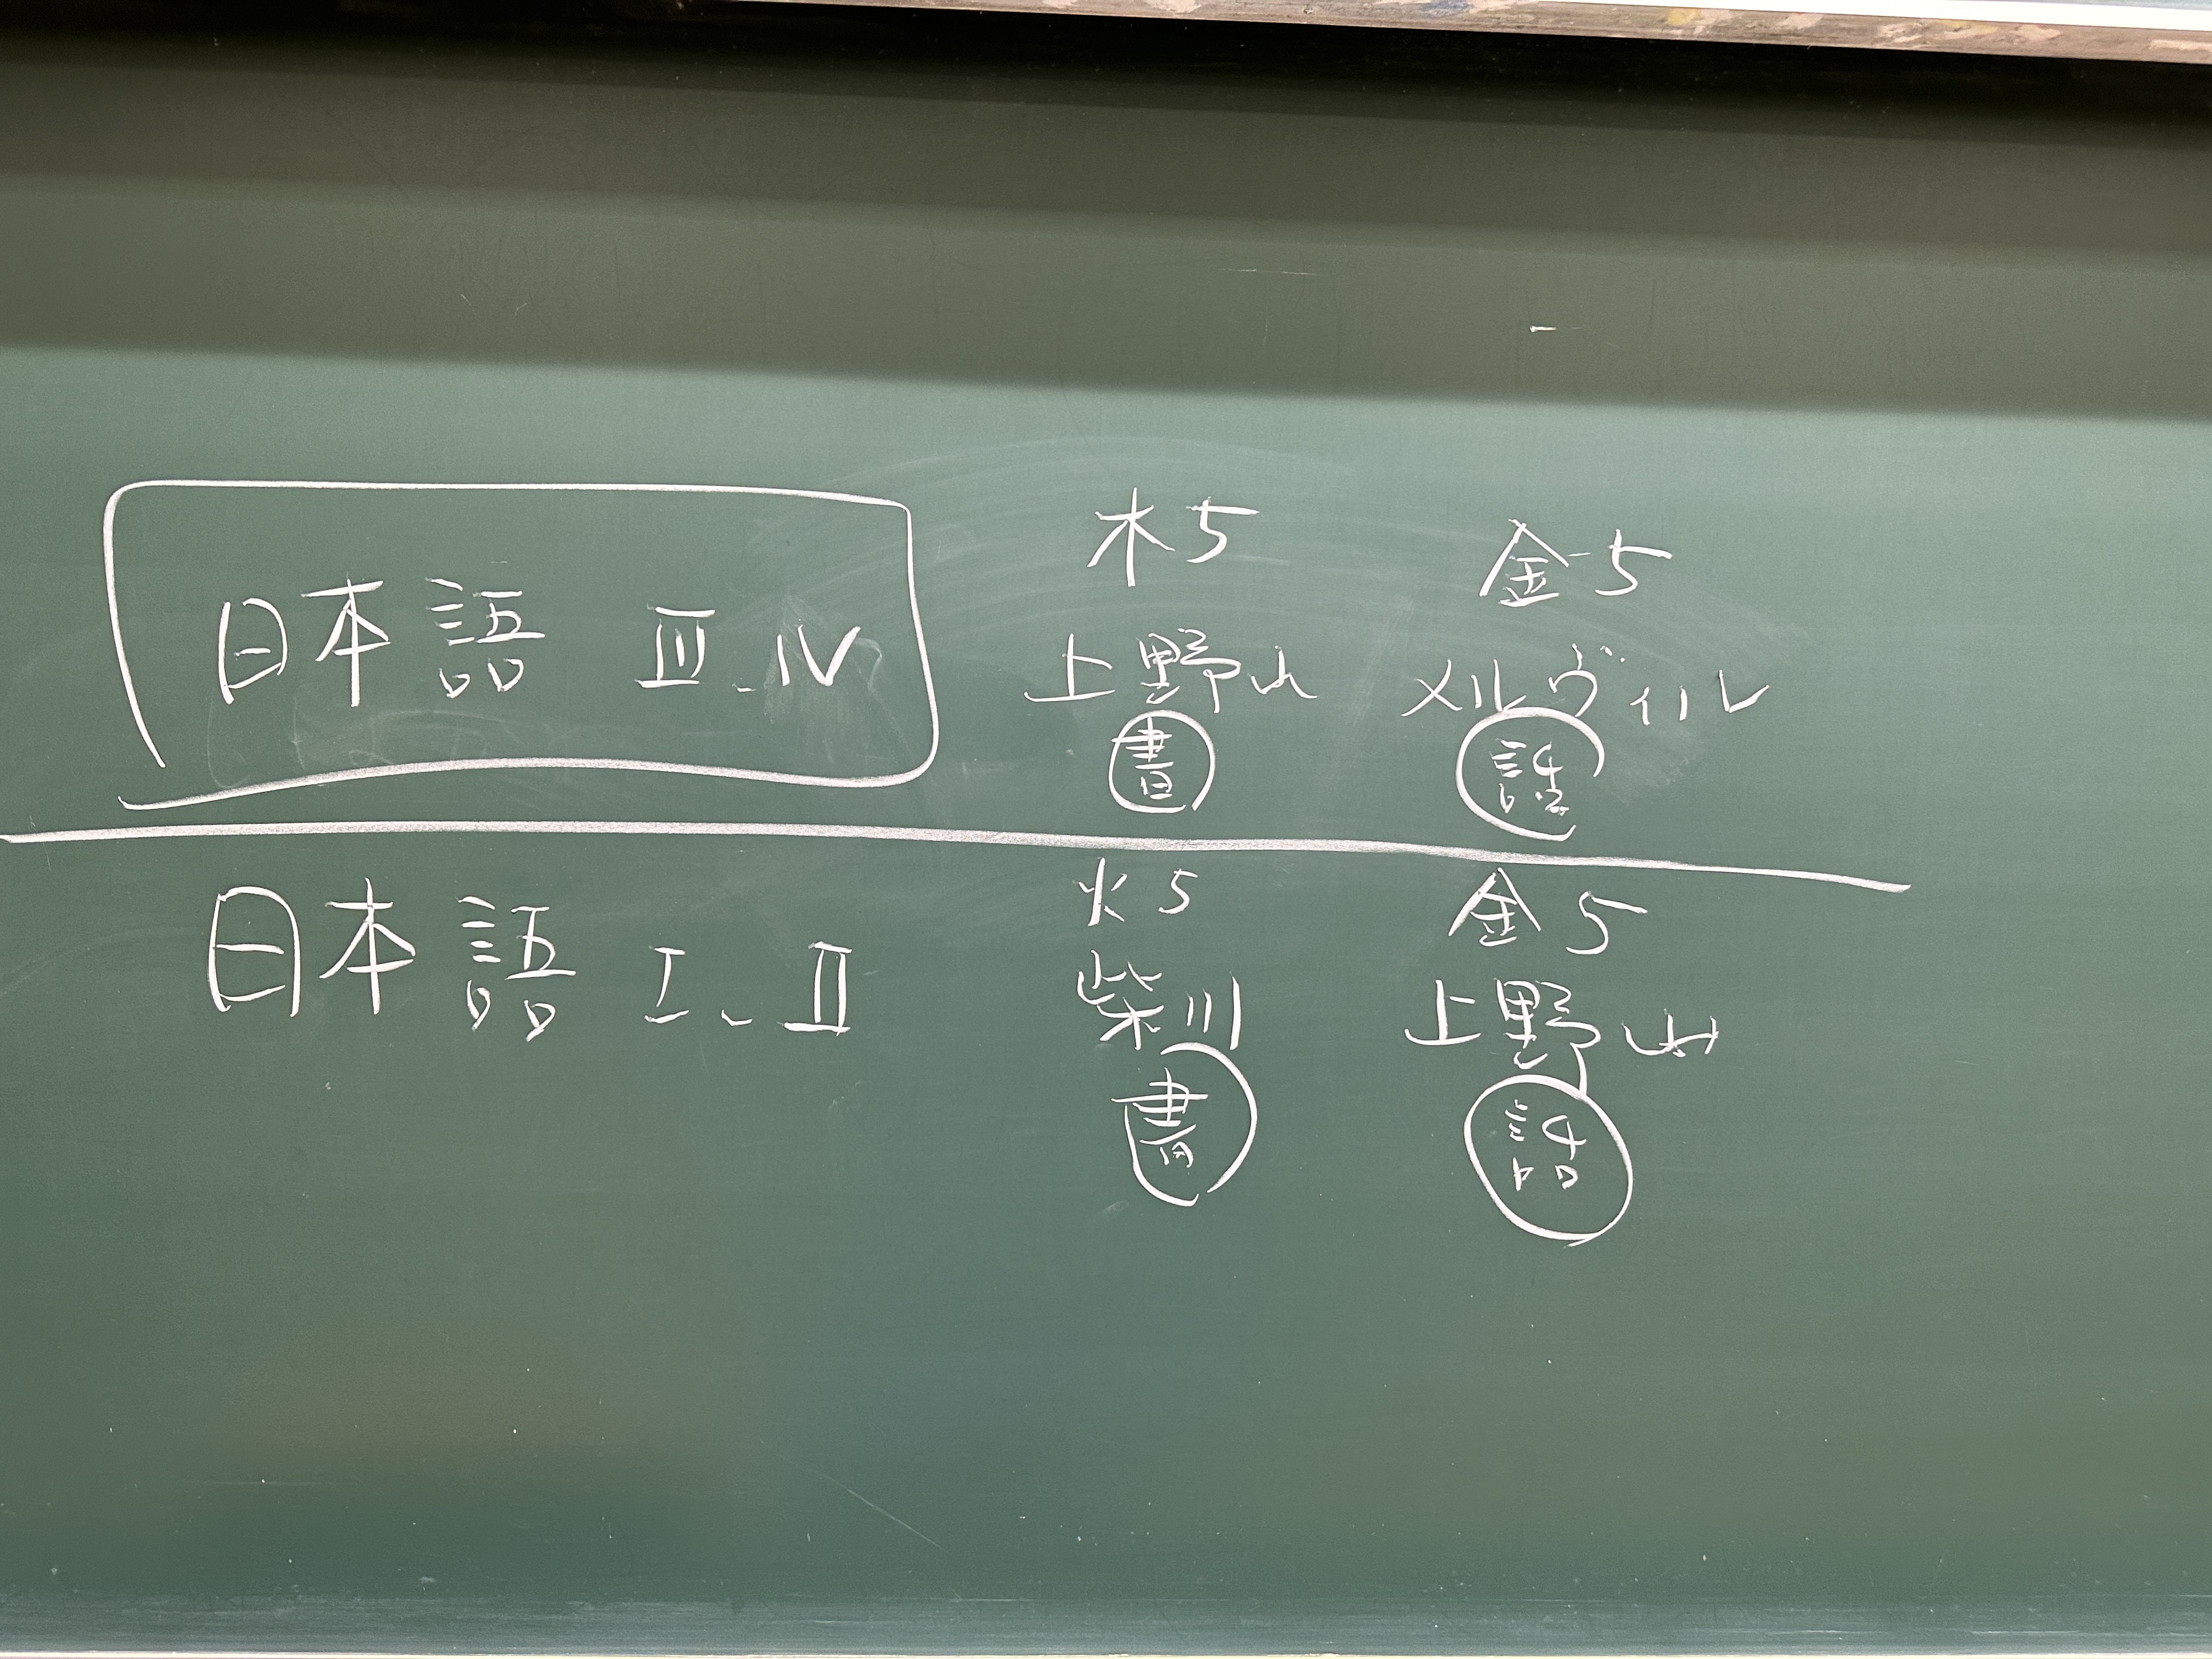 日本語 Ⅲ、Ⅳ
木5
上野山
書
金5
メルヴィル
話
日本語 Ⅰ、Ⅱ
火5
柴川
書
金5
上野山
話